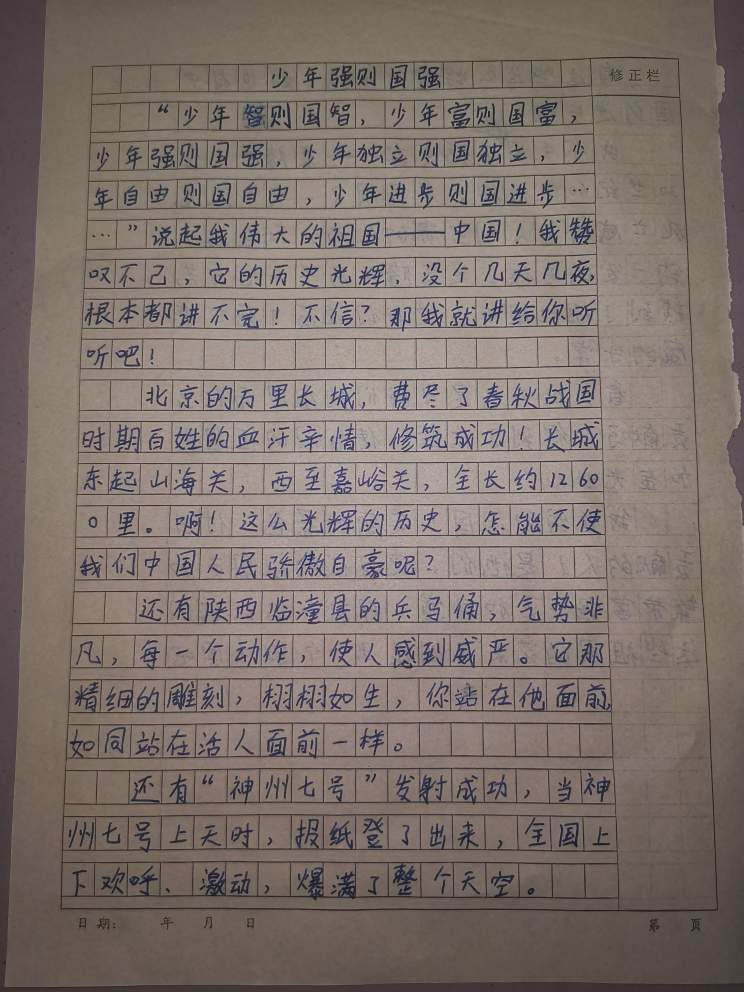 少年强则国强
修正栏
“少年智则国智，少年富则国富，
少年强则国强，少年独立则国独立，少
年自由则国自由，少年进步则国进步…
…”说起我伟大的祖国——中国！我赞
叹不己，它的历史光辉，没个几天几夜，
根本都讲不完！不信？那我就讲给你听
听吧！
北京的万里长城，费尽了春秋战国
时期百姓的血汗辛情，修筑成功！长城
东起山海关，西至嘉峪关，全长约1260
0里。啊！这么光辉的历史，怎能不使
我们中国人民骄傲自豪呢？
还有陕西临潼县的兵马俑，气势非
凡，每一个动作，使人感到威严。它那
精细的雕刻，栩栩如生，你站在他面前，
如同站在活人面前一样。
还有“神州七号”发射成功，当神
州七号上天时，报纸登了出来，全国上
下欢呼、激动，爆满了整个天空。
日期： 年 月 日
第 页